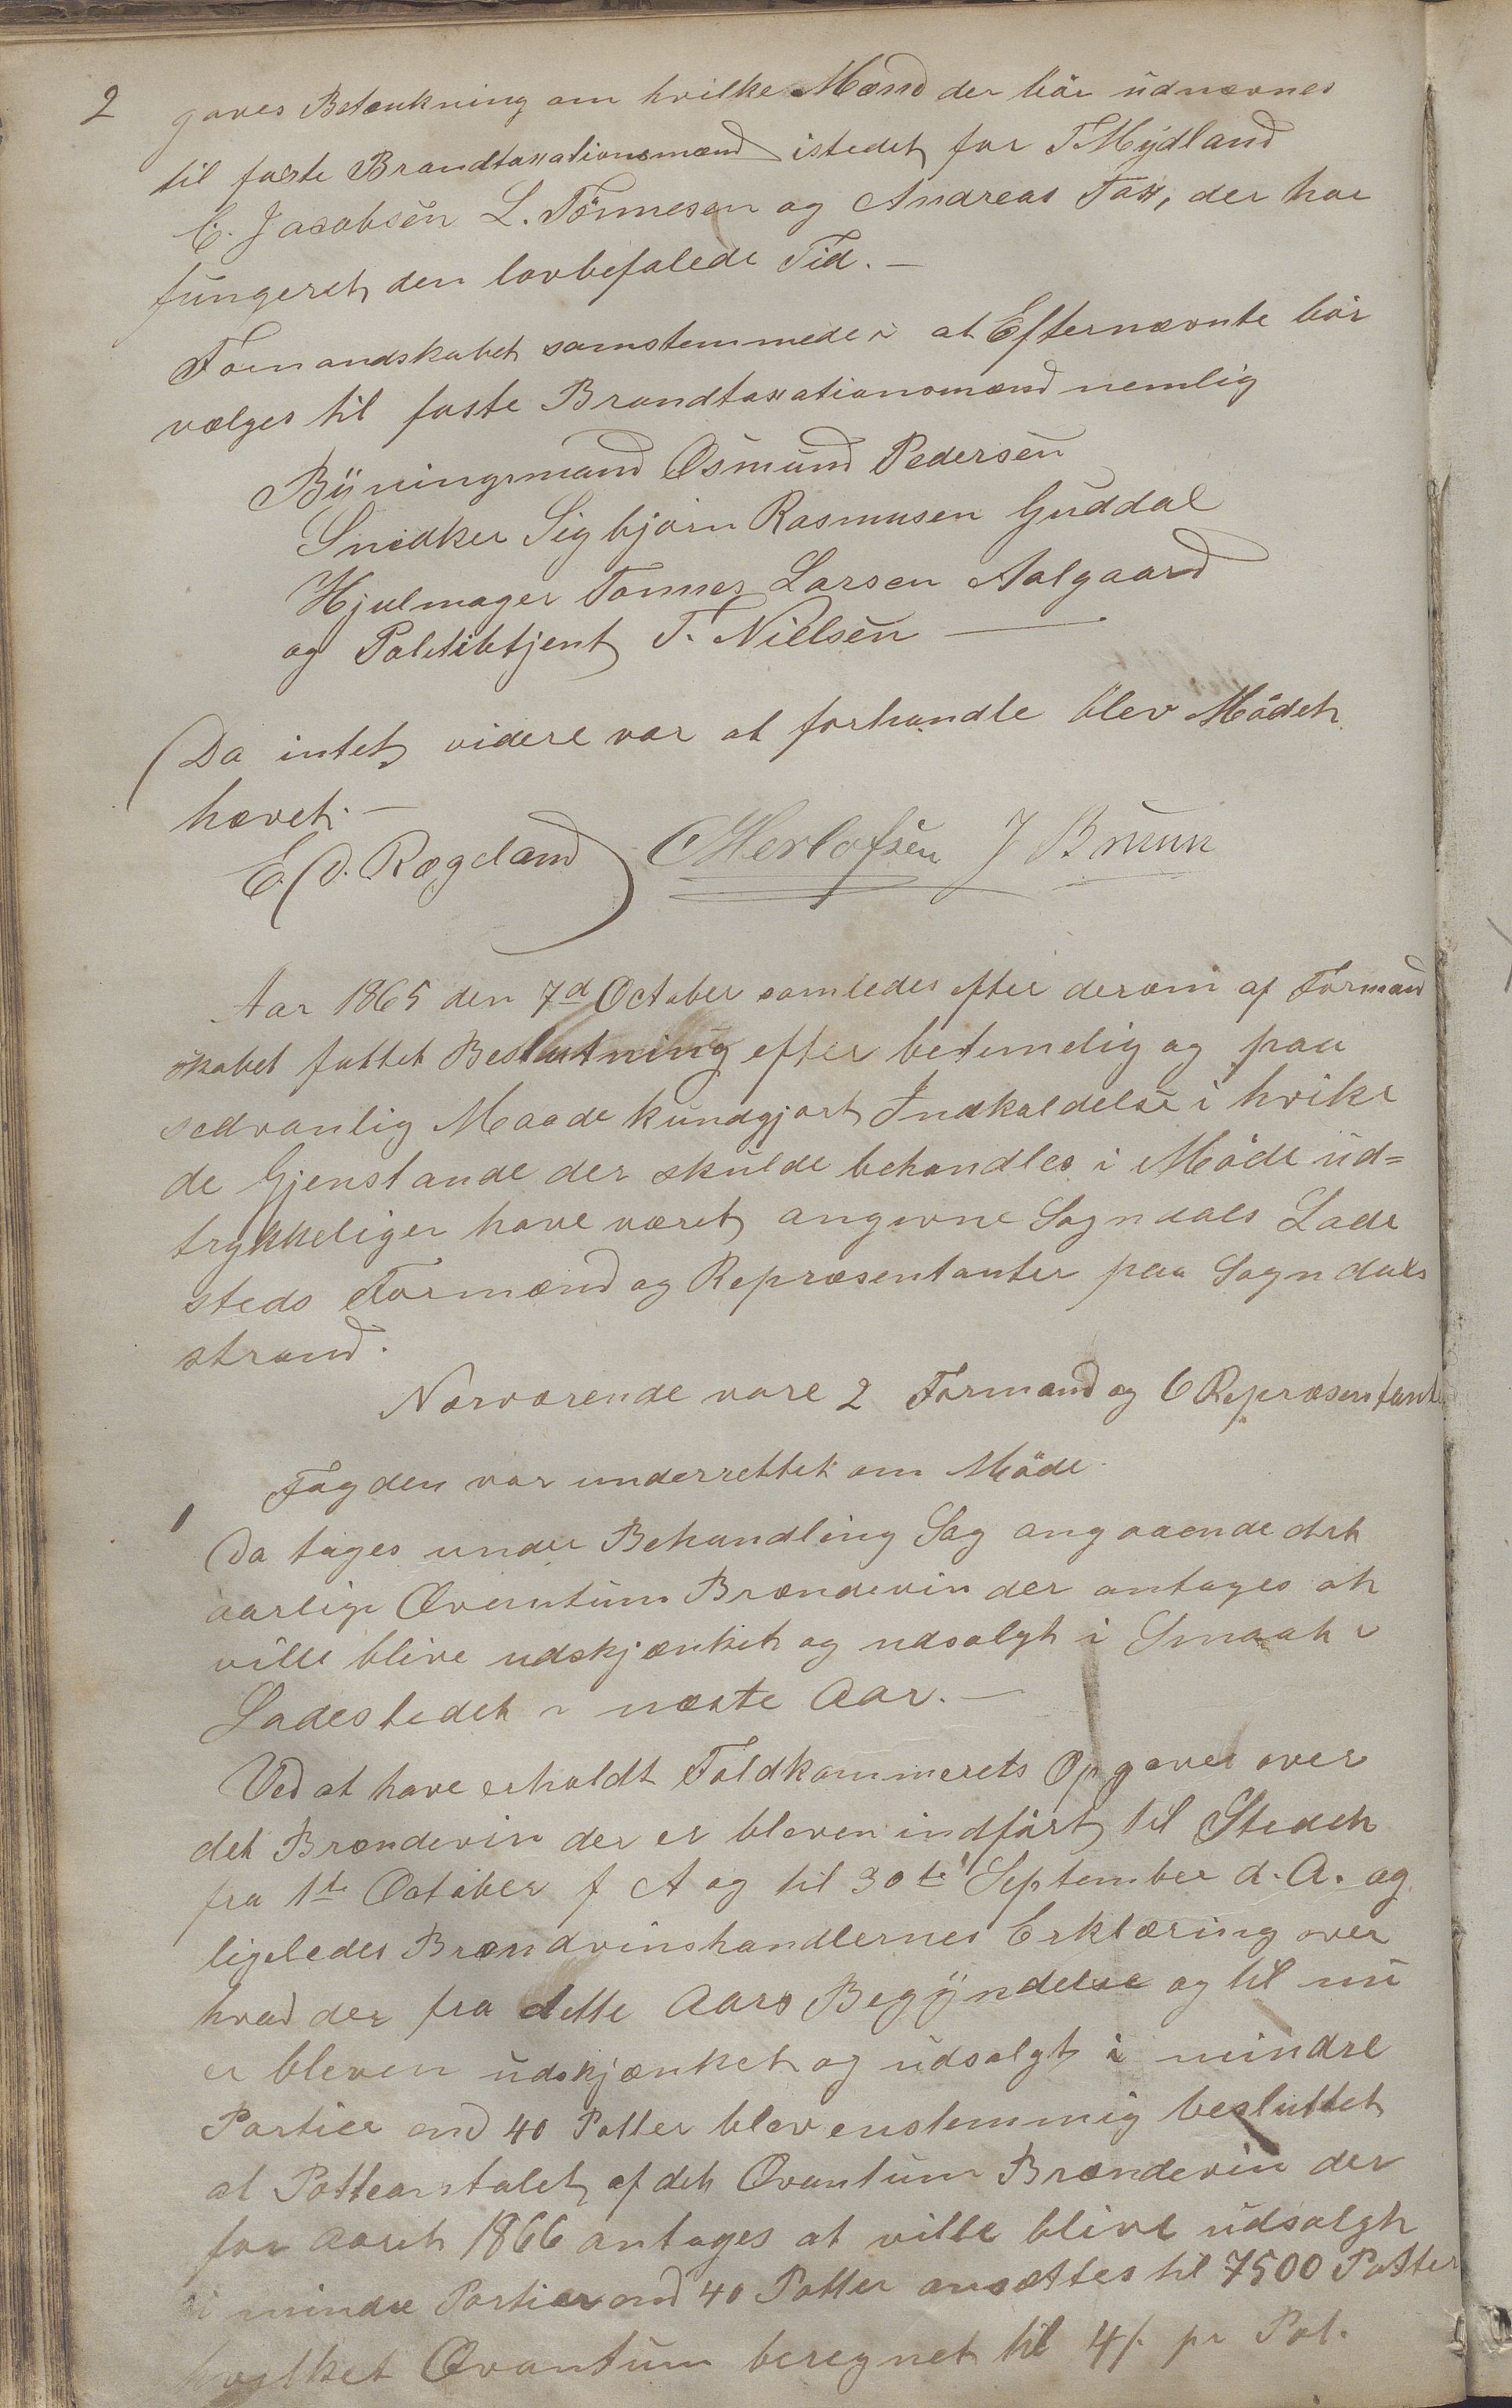 2 gaves Betænkning om hvilke Mænd der bör udnævnes
til faste Brandtaxationsmænd istedet for T Mydland
C. Jacobsen L. Tönnesen og Andreas Tox, der har
fungeret den lovbefalede Tid. —
Formandskabet samstemmede i at Efternævnte bör
vælges til faste Brandtaxationsmænd nemlig
Bÿningsmand Osmund Pedersen
Snedker Sigbjørn Rasmusen Guddal
Hjulmager Tønnes Larsen Aalgaard
og Politibtjent T. Nielsen —
Da intet videre var at forhandle blev Mödet
hævet. —
E. D. Rægeland CHerlofsen J Bruun
Aar 1865 den 7d October samledes efter derom af Formand
skabet fattet Beslutning efter betimelig og paa
sedvanlig Maade kundgjort Indkaldelse i hvilke
de Gjenstande der skulde behandles i Möde ud=
trykkeliger have været angivne Sogndals Lade
steds Formænd og Repræsentanter paa Sogndals
strand.
Nærværende vare 2 Formænd og 6 Repræsentant
Fogden var underrettet om Möde.
1 Da toges under Behandling Sag angaaende det
aarlige Qvantum Brændevin der antages at
ville blive udskjænket og udsalgt i Smaat i
Ladestedet i næste Aar. —
Ved at have erholdt Toldkammerets Opgaver over
det Brændevin der er bleven indført til Stedet
fra 1te October f A og til 30te September d. A. og
ligeledes Brændvinshandlernes Erklæring over
hvad der fra dette Aars Begÿndelse og til nu
er bleven udskjænket og udsalgt i mindre
Partier end 40 Potter blev enstemmig besluttet
at Potteantalet af det Qvantum Brændevin der
for Aaret 1866 antages at ville blive udsalgt
i mindre Partier end 40 Potter ansættes til 7500 Potter
hvilket Qvantum beregnet til 4/. pr Pot.